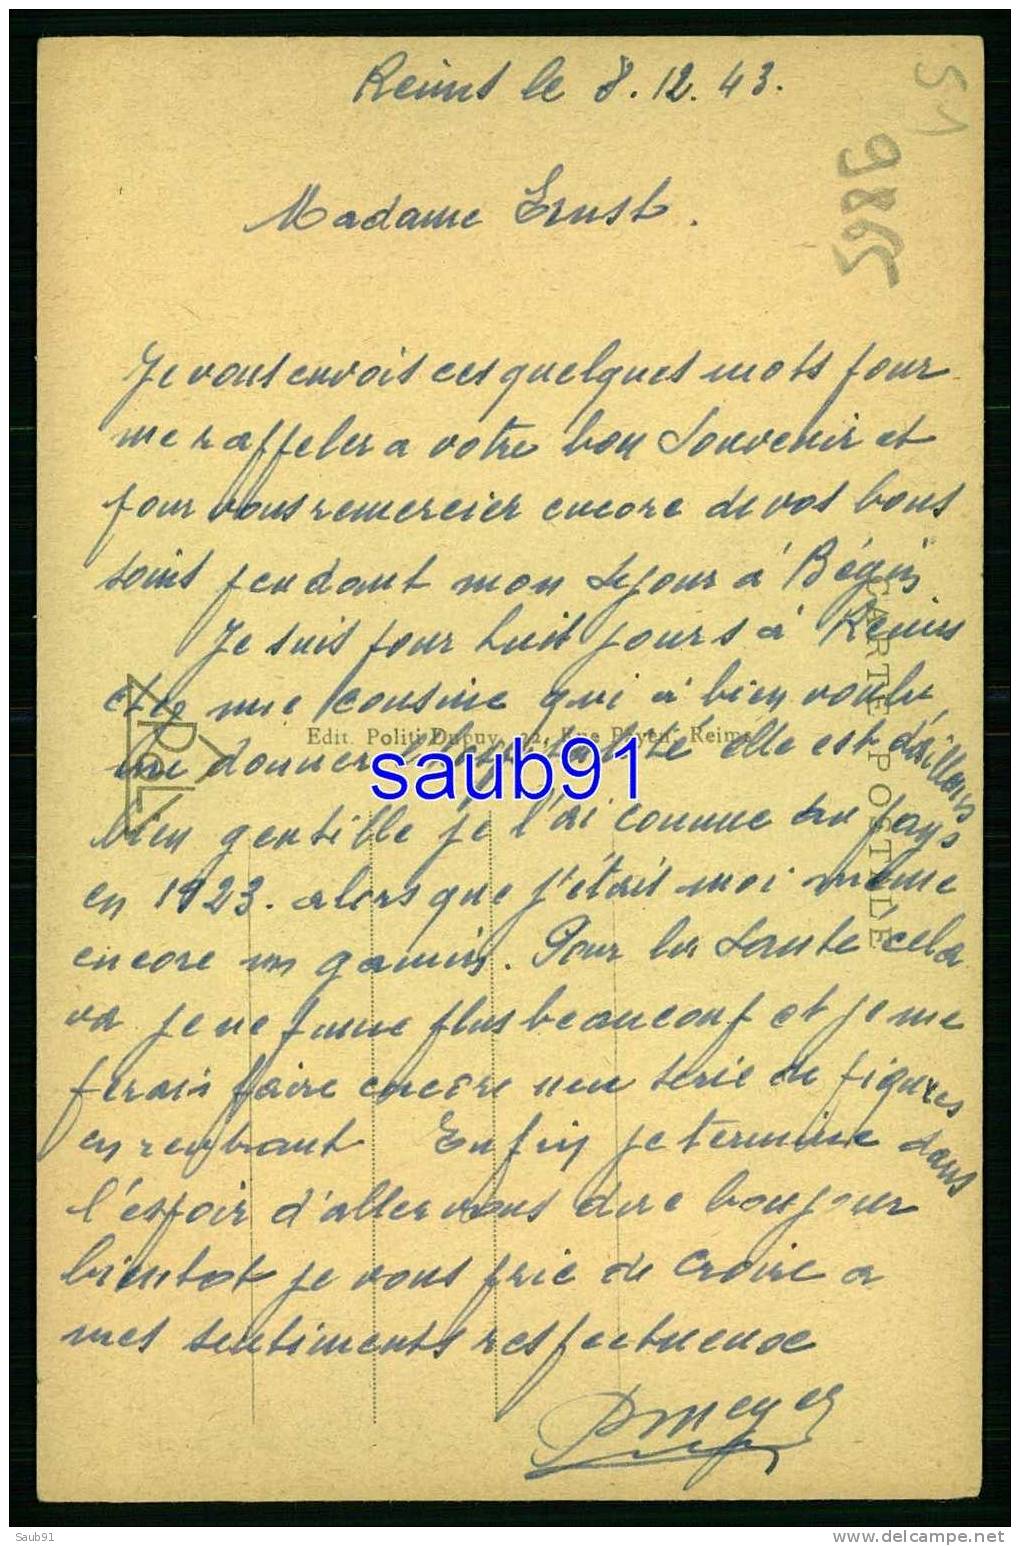 Reims le 8.12.43.
51
9865
Madame Ernst.
Je vous envois ces quelques mots pour
me rappeler a votre bon souvenir et
pour vous remercier encore de vos bons
soins pendant mon sejour à Bégin
Je suis pour huit jours à Reims
une cousine qui à bien voulu
me donner elle est d'ailleurs
bien gentille je l'ai connue au pays
en 1923. alors que j'étais moi même
encore un gamin. Pour la santé cela
va je ne fume plus beaucoup et je me
ferais faire encore une serie de figures
en rentrant Enfin je termine dans
l'espoir d'aller vous dire bonjour
bientot je vous prie de croire a
mes sentiments respectueuse
Dmeyer
CARTE POSTALE
Edit. Politi-Dupuy, 22, Rue Payen, Reims
saub91
Saub91
www.delcampe.net